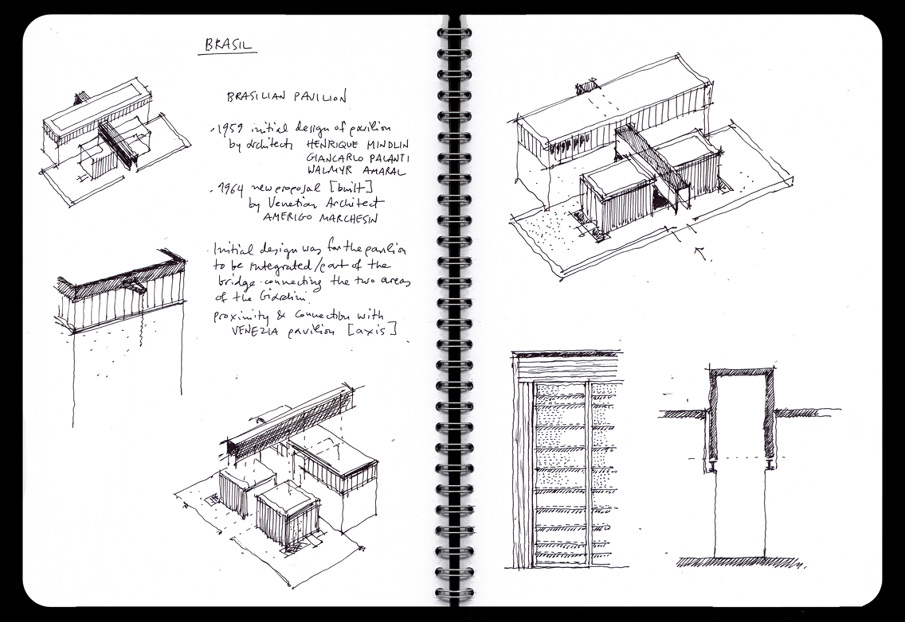 BRASIL
BRASILIAN PAVILION
. 1959 initial design of pavilion
by architects HENRIQUE MINDLIN
GIANCARLO PALANTI
WALMYR AMARAL
. 1964 new proposal [built]
by Venetian Architect
AMERIGO MARCHESIN
. Initial design was for the pavilion
to be integrated/part of the
bridge connecting the two areas
of the Giardini.
proximity & connection with
VENEZIA pavilion [axis]